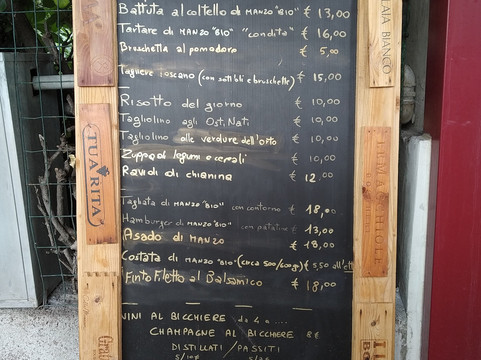 Battuta al coltello di MANZO "BIO" € 13,00
Tartare di MANZO "BIO" "condita" € 16,00
Bruschetta al pomodoro € 5,00
Tagliere Toscano (con sott'oli e bruschette) € 15,00
Risotto del giorno € 10,00
Tagliolino agli Ost. Nati € 10,00
Tagliolino alle verdure dell'orto € 10,00
Zuppa di legumi e cereali € 10,00
Ravioli di chianina € 12.00
Tagliata di MANZO "BIO" con contorno € 18,00
Hamburger di MANZO "BIO" con patatine € 13,00
Asado di MANZO € 18,00
Costata di MANZO "BIO" (circa 500/600g) € 5,50 all'etto
Finto Filetto al Balsamico € 18,00
VINI AL BICCHIERE da 4 a ....
CHAMPAGNE AL BICCHIERE 8€
DISTILLATI / PASSITI
TUA RITA
BIANCO